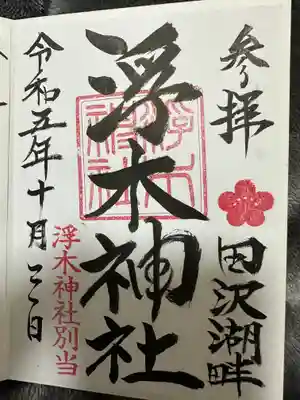 参拝
田沢湖畔
浮木神社
浮木
神社
令和五年十月 日
浮木神社別当